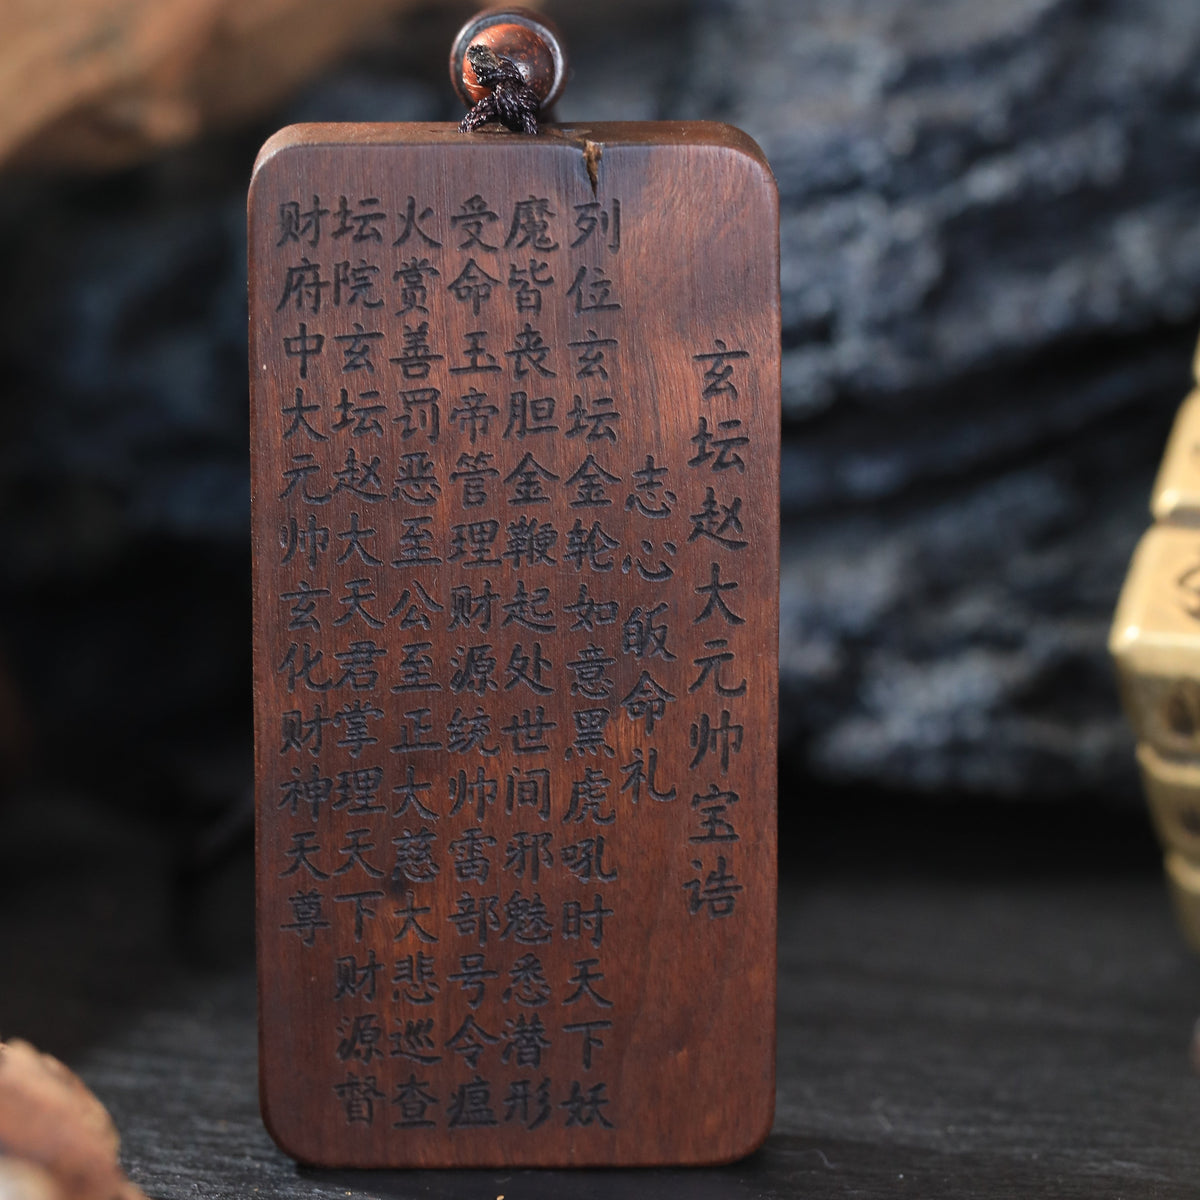 玄坛赵大元帅宝诰
志心皈命礼
列位玄坛金轮如意黑虎吼时天下妖
魔皆丧胆金鞭起处世间邪魅悉潜形
受命玉帝管理财源统帅雷部号令瘟
火赏善罚恶至公至正大慈大悲巡查
坛院玄坛赵大天君掌理天下财源督
财府中大元帅玄化财神天尊